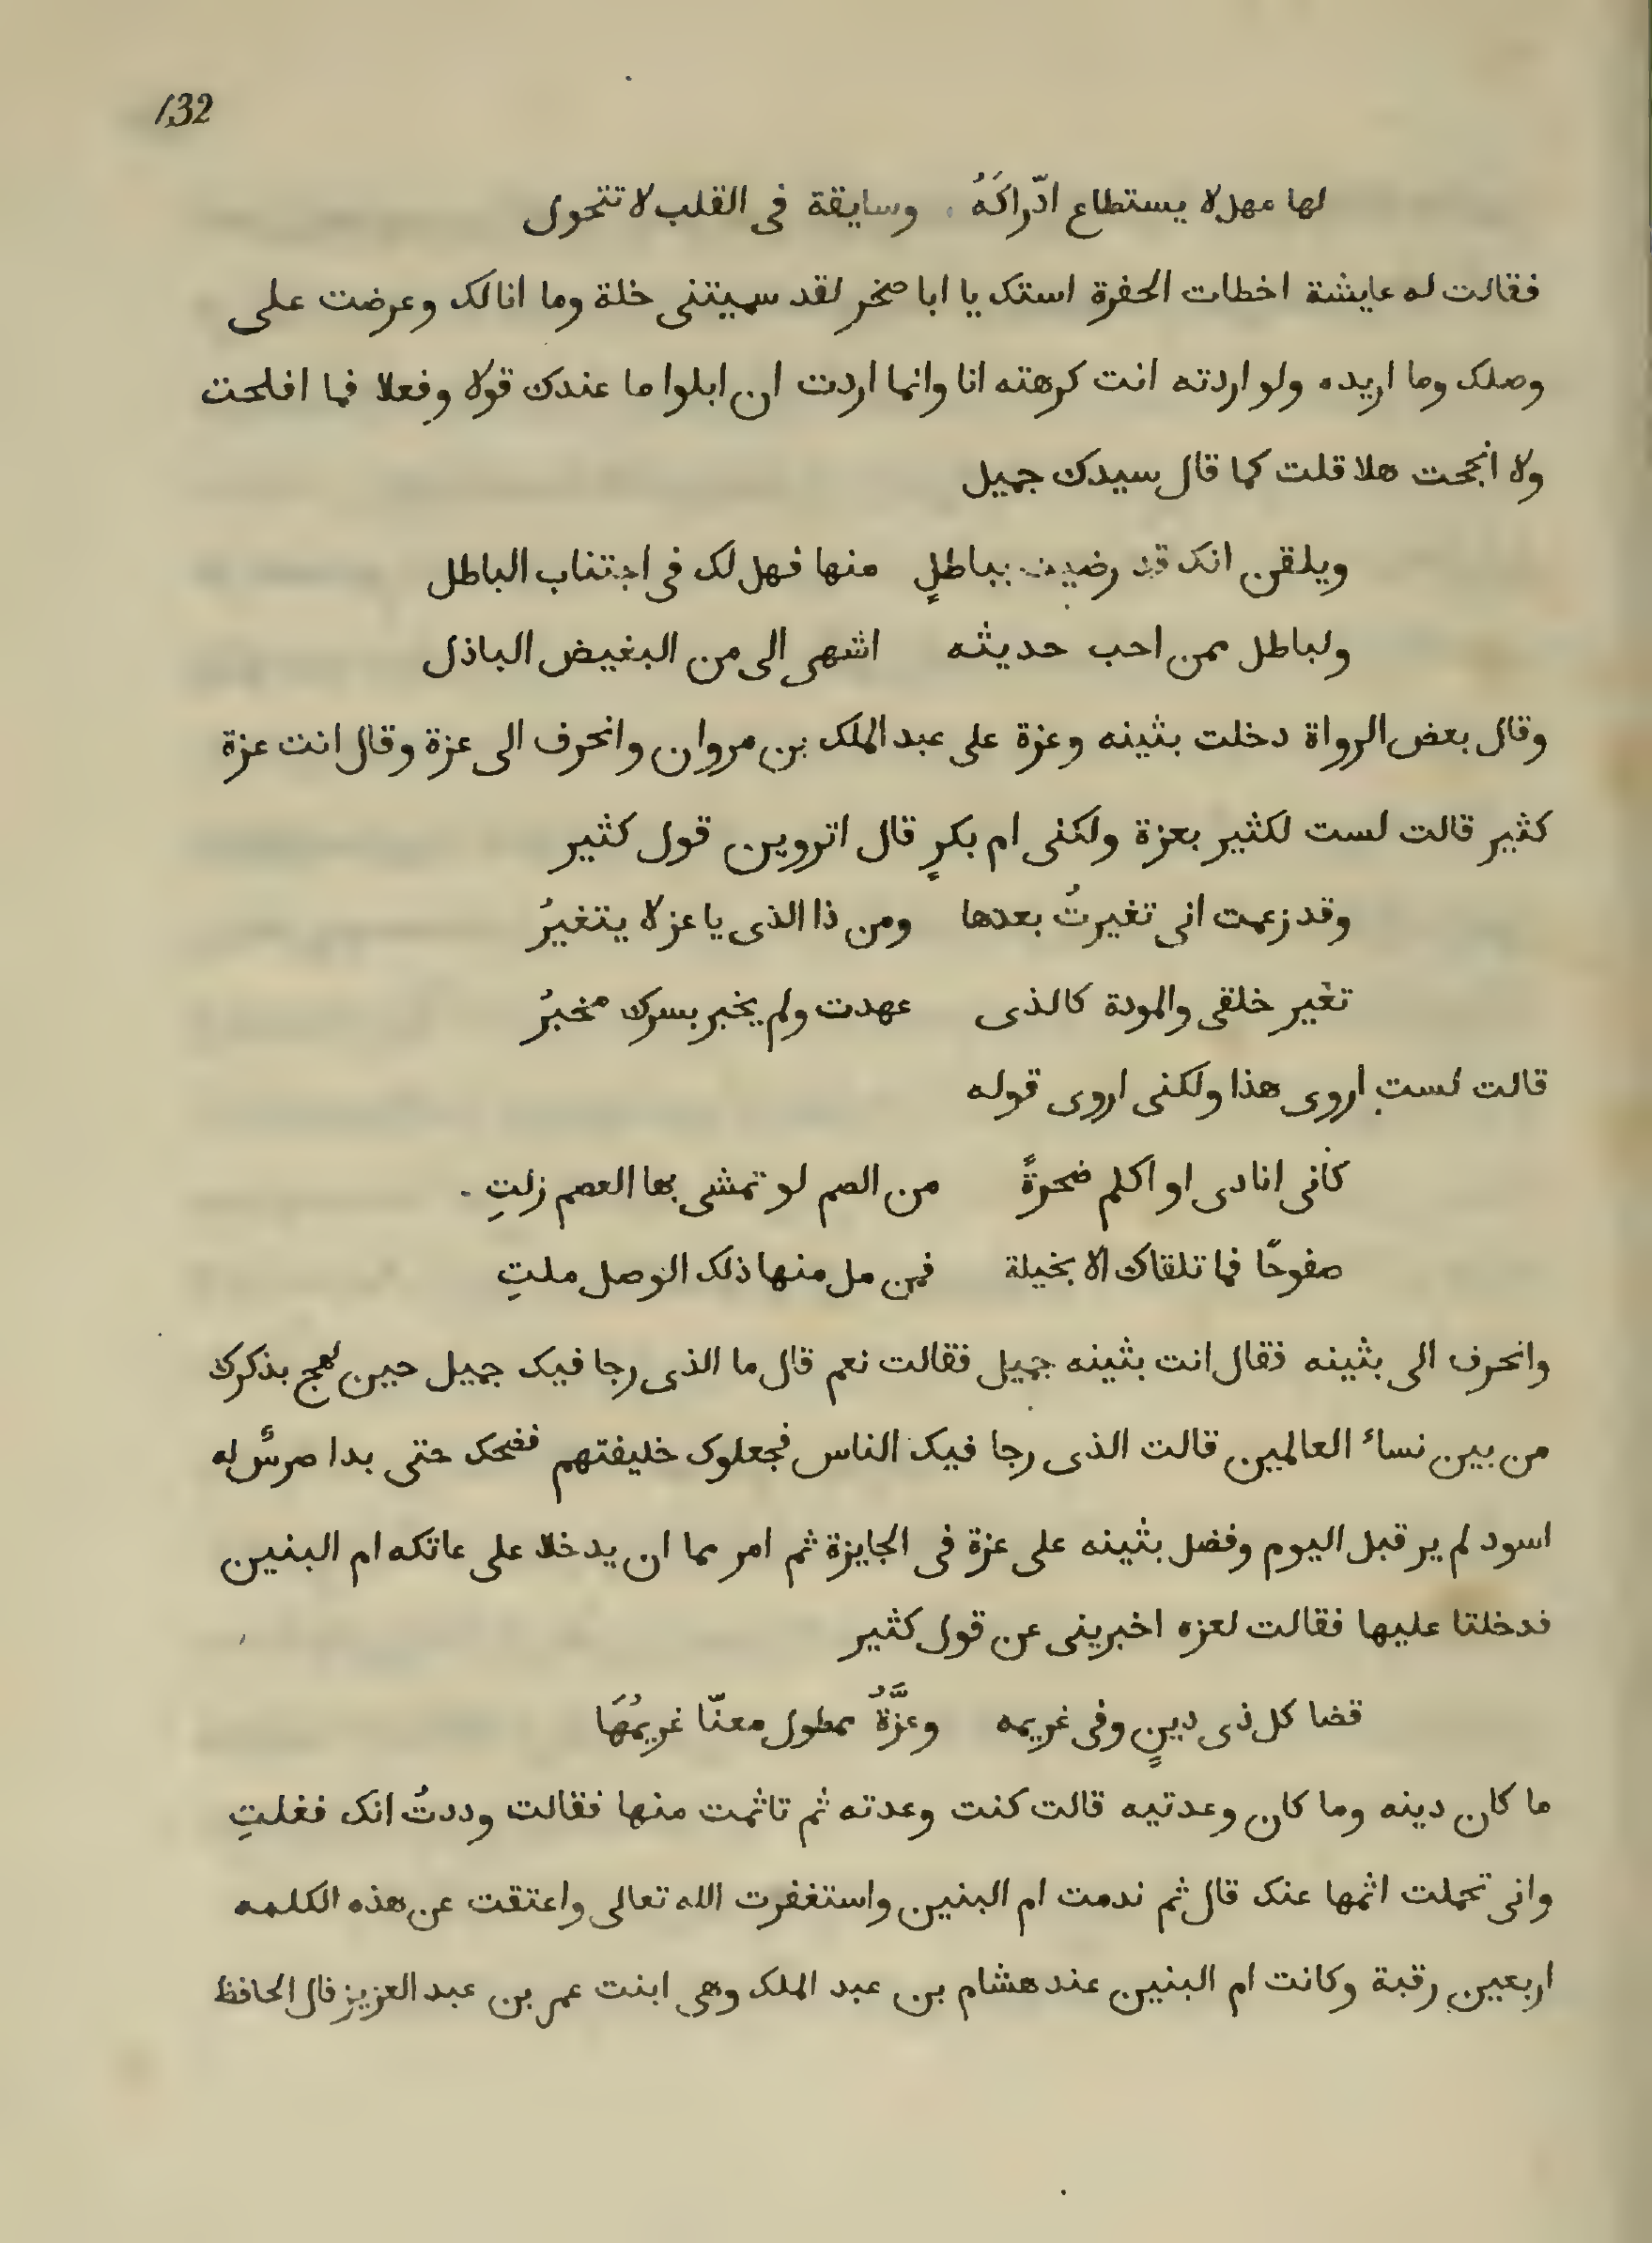 132
لها مهل لا يستطاع ادّراكَهُ . وسايقة فى القلب لا تتحول
فقالت له عايشة اخطات الحفرة استك يا ابا صخر لقد سميتنى خلة وما انا لك وعرضت على
وصلك وما اريده ولو اردته انت كرهته انا وانما اردت ان ابلوا ما عندك قولا وفعلا فما افلحت
ولا انجحت هلا قلت كما قال سيدك جميل
ويلقن انك قد رضيت بباطلٍ منها فهل لك فى اجتناب الباطل
ولباطل ممن احب حديثه اشهى الى من البغيض الباذل
وقال بعض الرواة دخلت بثينه وعزة على عبد الملك بن مروان وانحرف الى عزة وقال انت عزة
كثير قالت لست لكثير بعزة ولكنى ام بكرٍ قال اتروين قول كثير
وقد زعمت انى تغيرتُ بعدها ومن ذا الذى يا عز لا يتغيرُ
تغير خلقى والمودة كالذى عهدت ولم يخبر بسرك مخبرُ
قالت لست اروى هذا ولكنى اروى قوله
كأنى انادى او اكلم ضحرةً من الصم لو تمشى بها العصم زلتِ .
صفوحًا فما تلقاك الا بخيلة فمن مل منها ذلك الوصل ملتِ
وانحرف الى بثينه فقال انت بثينه جميل فقالت نعم قال ما الذى رجا فيك جميل حين لهج بذكرك
من بين نساء العالمين قالت الذى رجا فيك الناس فجعلوك خليفتهم فضحك حتى بدا ضرسٌ له
اسود لم ير قبل اليوم وفضل بثينه على عزة فى الجايزة ثم امر بهما ان يدخلا على عاتكه ام البنين
فدخلتا عليها فقالت لعزه اخبرينى عن قول كثير
قضا كل ذى دينٍ وفى غريمه وعزَّةُ ممطول معنّا غريمُهَا
ما كان دينه وما كان وعدتيه قالت كنت وعدته ثم تاثمت منها فقالت وددتُ انك فغلتِ
وانى تحملت اثمها عنك قال ثم ندمت ام البنين واستغفرت الله تعالى واعتقت عن هذه الكلمه
اربعين رقبة وكانت ام البنين عند هشام بن عبد الملك وهى ابنت عمر بن عبد العزيز قال الحافظ